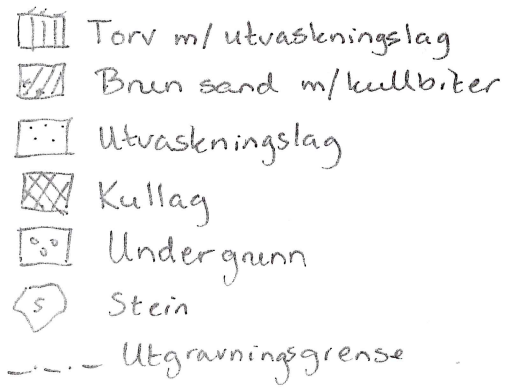 Torv m/ utvaskningslag
Brun sand m/kullbiter
Utvaskningslag
Kullag
Undergrunn
S Stein
Utgravningsgrense